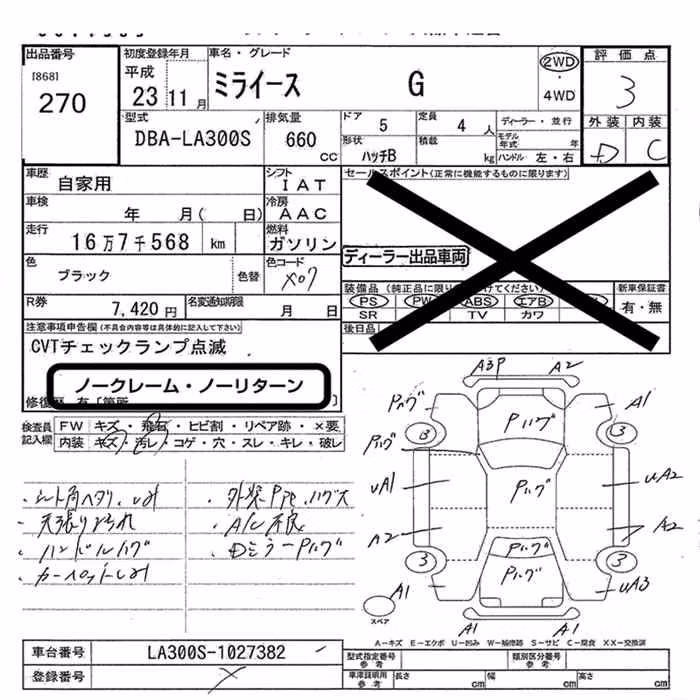 出品番号 初度登録年月 車名・グレード 評価点
[868] 平成 ミライース G 2WD
270 23 11月 ・ 3
4WD
型式 排気量 ドア 定員 ディーラー・並行 外装 内装
DBA-LA300S 660 cc 5 4 人 モデル年式 年 D C
形状 積載
ハッチB kg ハンドル 左・右
車歴 シフト セールスポイント(正常に機能するものに限ります)
自家用 IAT
車検 冷房
年 月( 日) AAC
走行 燃料
16万7千568 km ガソリン ディーラー出品車両
色 色コード
ブラック 色替 X07 装備品(純正品に限り けてください) 新車保証書
R券 名変通知期限 PS PW ABS エアB 有・無
7,420円 月 日 SR TV カワ
注意事項申告欄(不具合内容等は具体的に記入して下さい) 後日品
CVTチェックランプ点滅
ノークレーム・ノーリターン
修復歴 有 [箇所 ]
検査員記入欄 FW キズ・飛石・ヒビ割・リペア跡・×要
内装 キズ・汚レ・コゲ・穴・スレ・キレ・破レ
A3P A2
Pハゲ Pハゲ A1
3 3
Pハゲ
UA1 Pハゲ UA2
A2 A2
3 Pハゲ 3
A1 Pハゲ UA3
スペア
A1 A1
・シート角ヘタリ、シミ ・外装PPt、ハゲス
・天張りよごれ ・A/C不良
・ハンドルハゲ ・DミラーPハゲ
・カーペットシミ
A-キズ E-エクボ U-凹み W-補修跡 S-サビ C-腐食 XX-交換済
車台番号 LA300S-1027382 型式指定番号 参考 類別区分番号 参考
登録番号 車庫証明用 参考 長さ cm 幅 cm 高さ cm